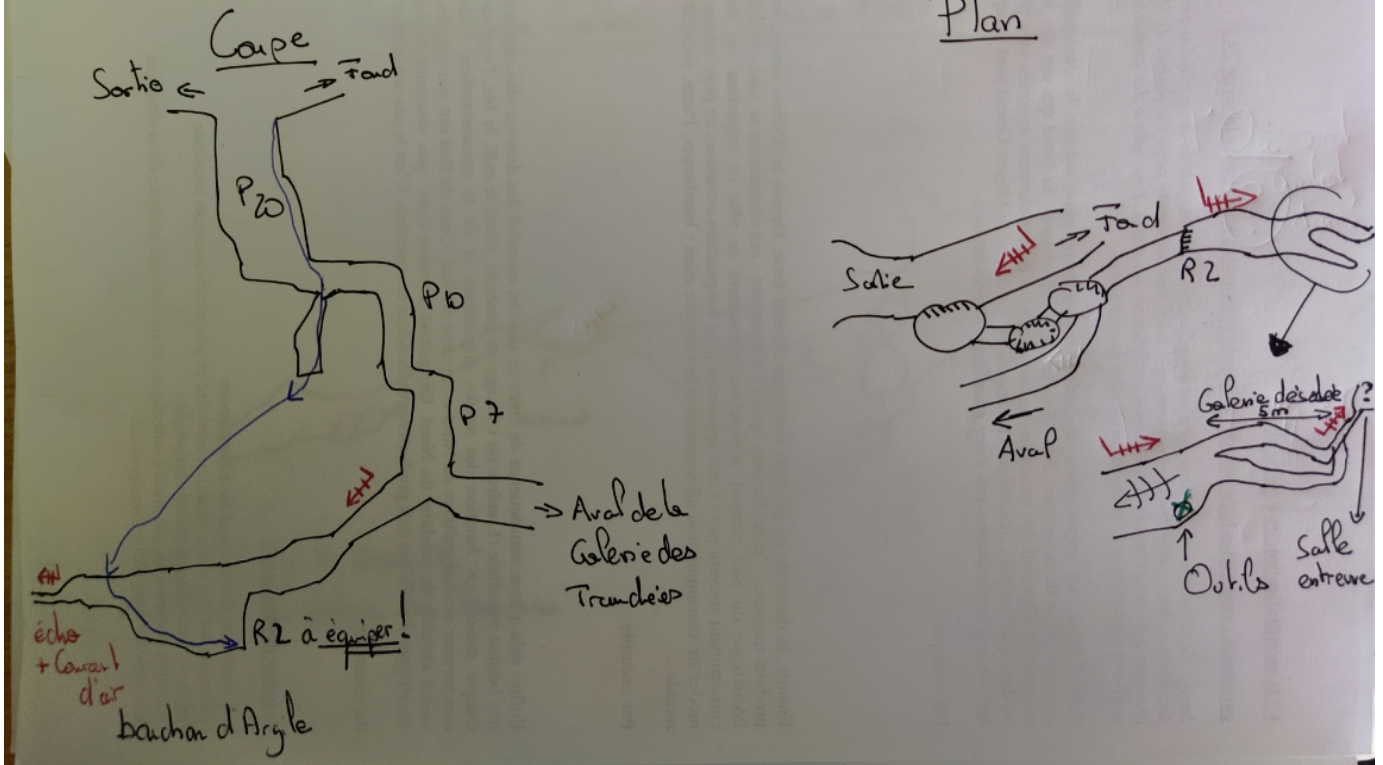 Coupe
Sortie
Fond
P20
P10
P7
Aval de la
Galerie des
Tranchées
R2 à équiper!
écho
+ Courant
d'air
bouchon d'Argile
Plan
Sortie
Fond
R2
Aval
Galerie désobée
5m
?
Outils
Salle
entrevue